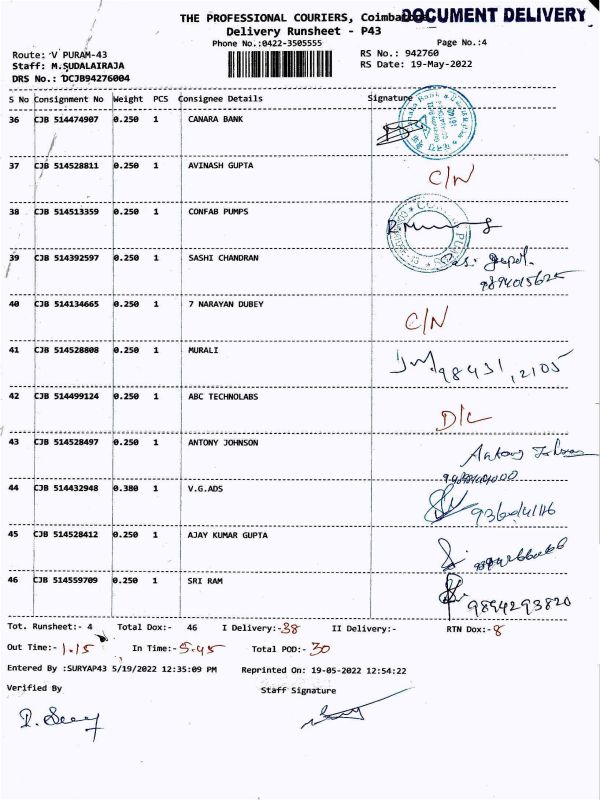 THE PROFESSIONAL COURIERS, DOCUMENT DELIVERY
Delivery Runsheet - P43
Phone No.:0422-3505555 Page No.:4
Route: V PURAM-43 RS No.: 942760
Staff: M.SUDALAIRAJA RS Date: 19-May-2022
DRS No.: DCJB94276004
S No Consignment No Weight PCS Consignee Details Signature
36 CJB 514474907 0.250 1 CANARA BANK
37 CJB 514528811 0.250 1 AVINASH GUPTA C/N
38 CJB 514513359 0.250 1 CONFAB PUMPS
39 CJB 514392597 0.250 1 SASHI CHANDRAN
9894015625
40 CJB 514134665 0.250 1 7 NARAYAN DUBEY C/N
41 CJB 514528808 0.250 1 MURALI 98431,2105
42 CJB 514499124 0.250 1 ABC TECHNOLABS D/L
43 CJB 514528497 0.250 1 ANTONY JOHNSON Antony Johnson
44 CJB 514432948 0.380 1 V.G.ADS
45 CJB 514528412 0.250 1 AJAY KUMAR GUPTA
46 CJB 514559709 0.250 1 SRI RAM 9894293820
Tot. Runsheet:- 4 Total Dox:- 46 I Delivery:-38 II Delivery:- RTN Dox:-8
Out Time:- 1.15 In Time:-5.45 Total POD:- 30
Entered By :SURYAP43 5/19/2022 12:35:09 PM Reprinted On: 19-05-2022 12:54:22
Verified By Staff Signature